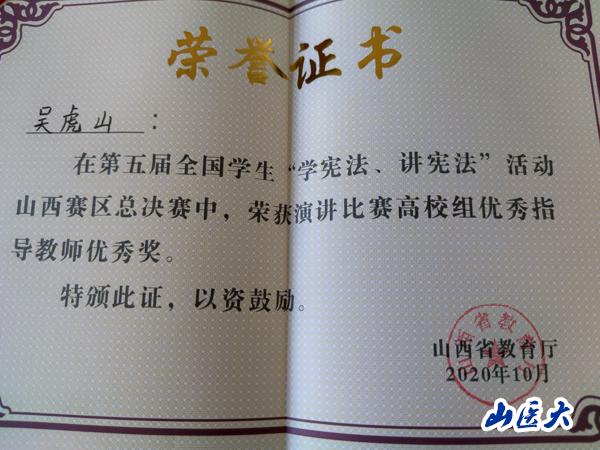 荣誉证书
吴虎山：
在第五届全国学生“学宪法、讲宪法”活动
山西赛区总决赛中，荣获演讲比赛高校组优秀指
导教师优秀奖。
特颁此证，以资鼓励。
山西省教育厅
山西省教育厅
2020年10月
山医大